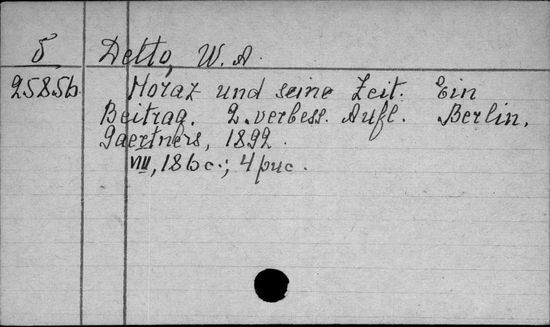 5 Detto, W. A.
25856 Horaz und seine Zeit. Ein
Beitrag. 2. verbess. Aufl. Berlin,
Gaertners, 1892.
VIII, 186 c.; 4 рис.